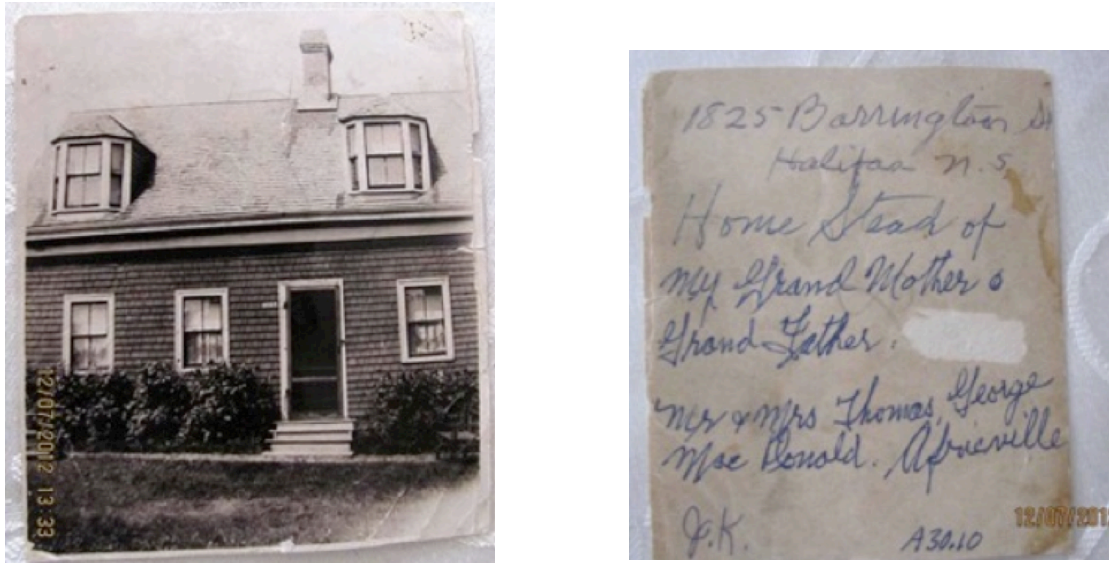 12/07/2012 13:33
1825 Barrington St
Halifax N.S.
Home Stead of
my Grand Mother &
Grand Father.
Mr & Mrs Thomas, George
Mac Donald. Africville
J.K.
A30.10
12/07/2012